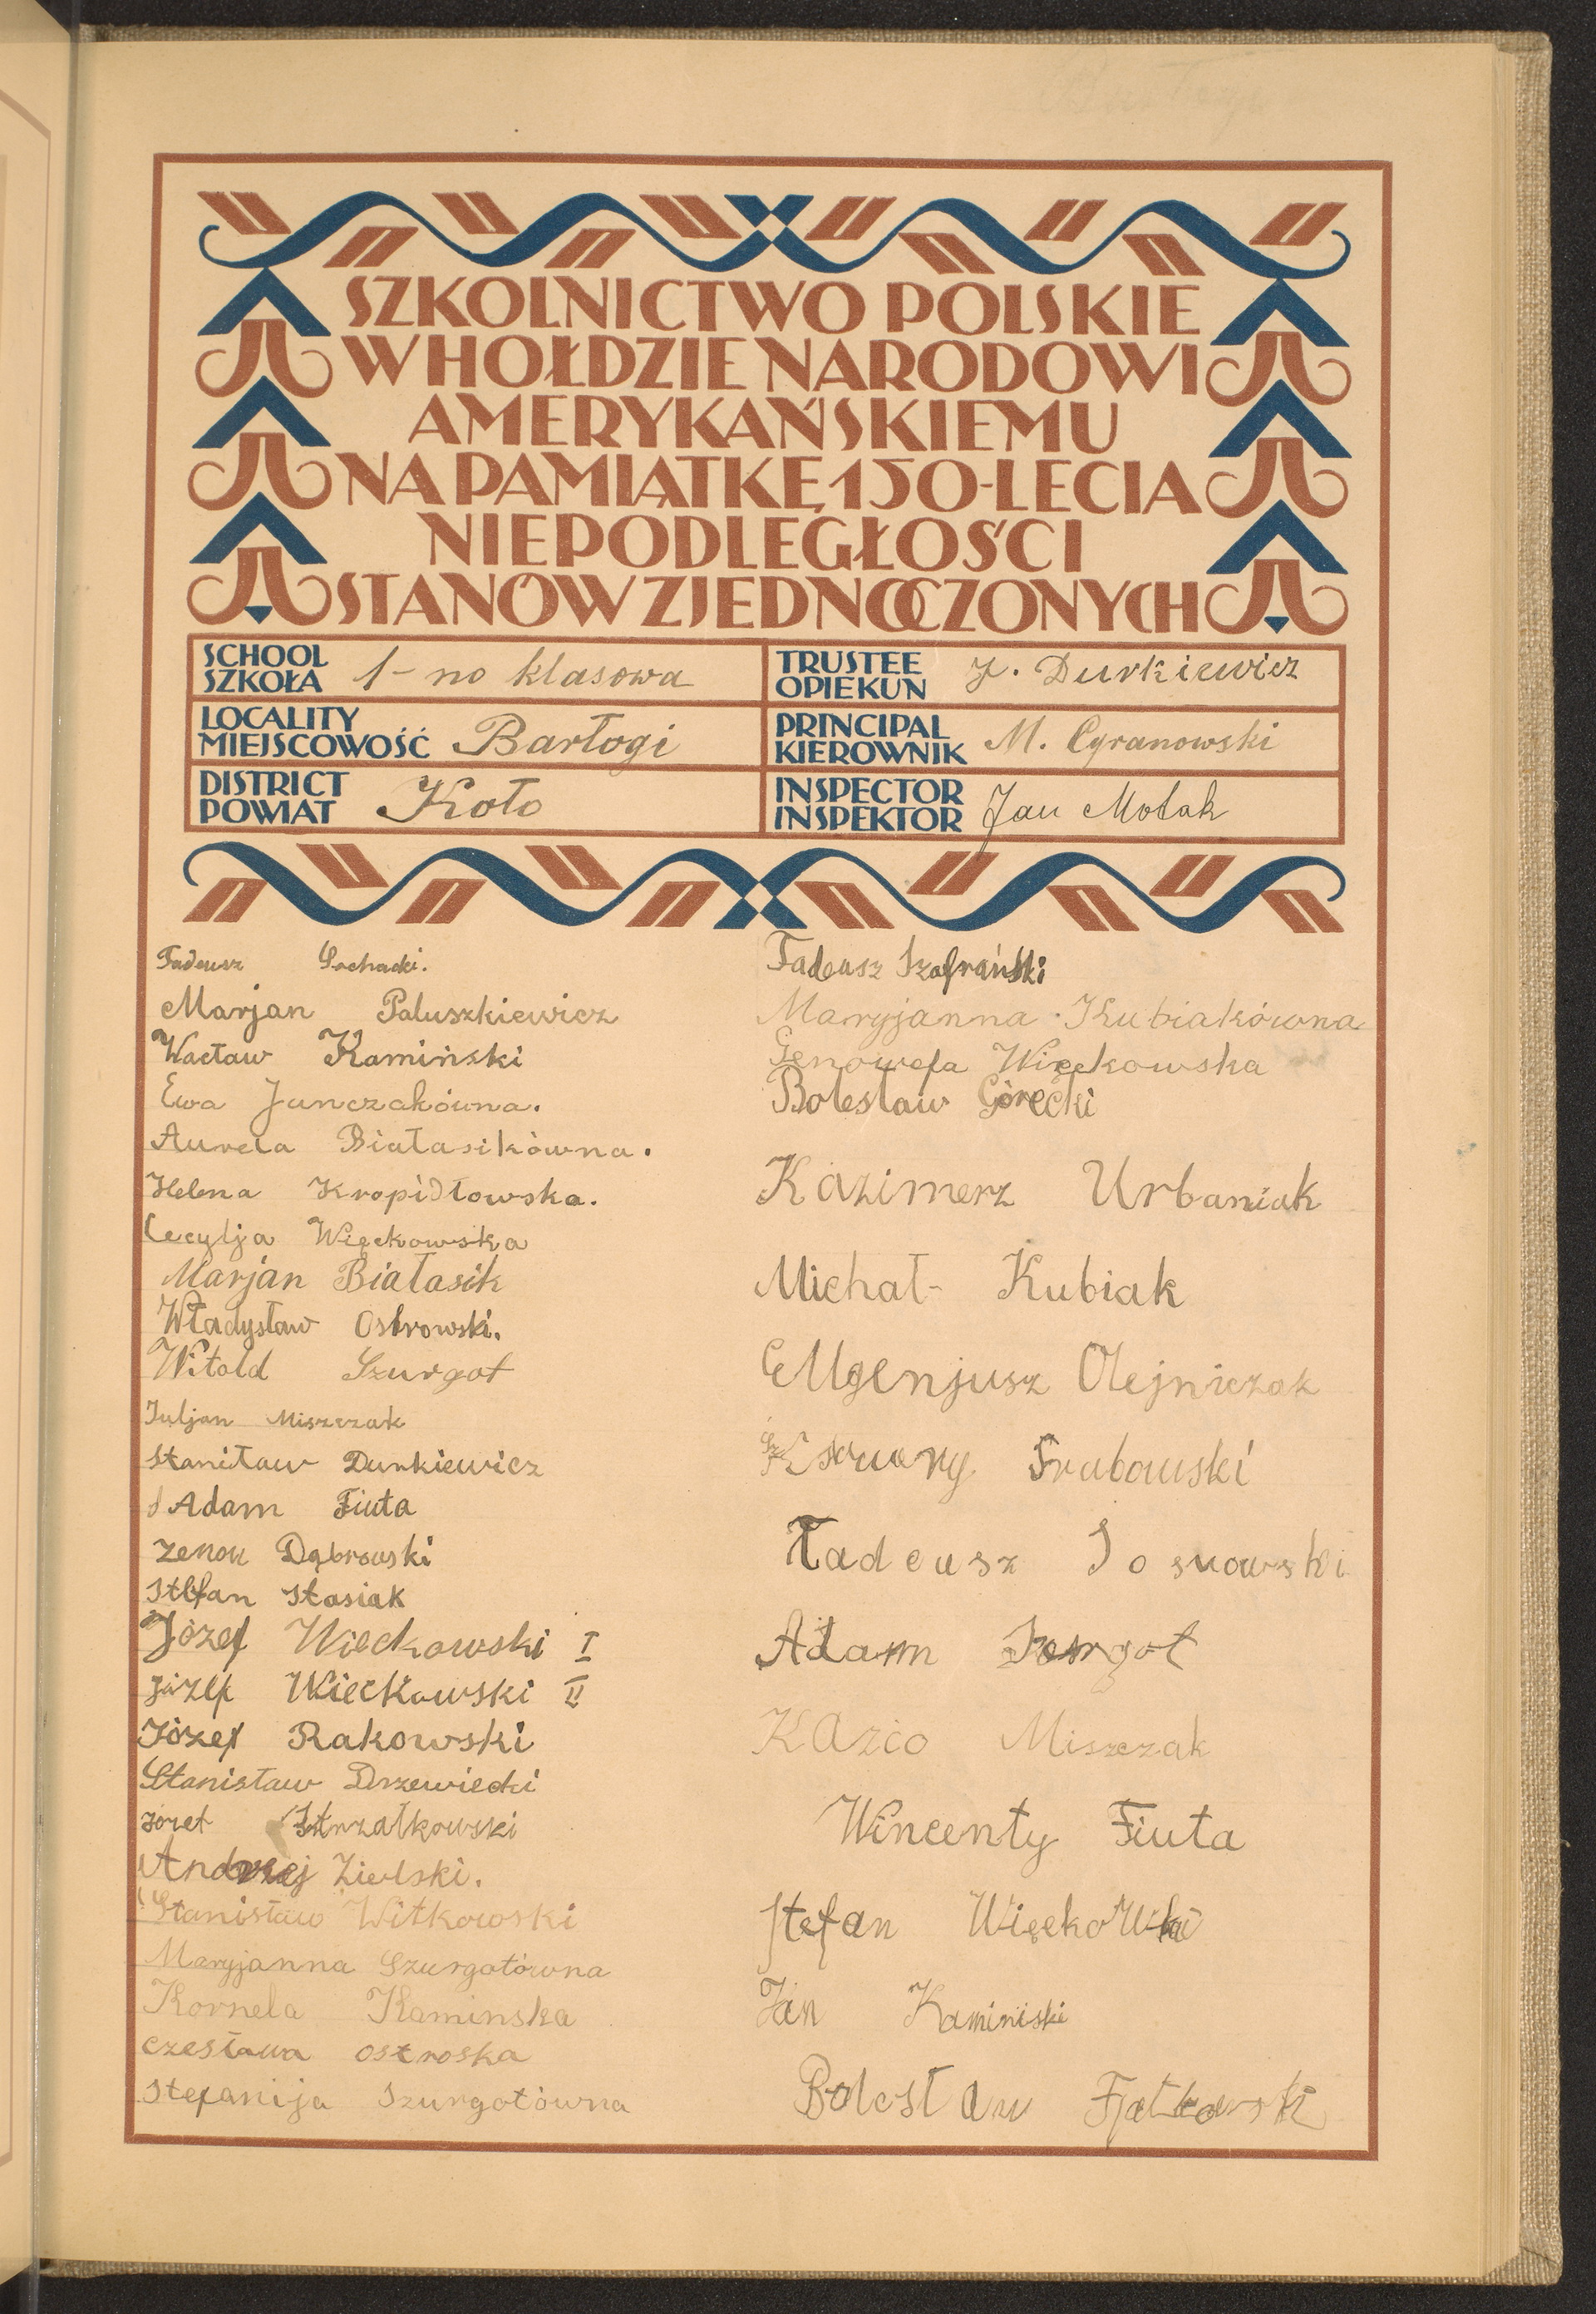 SZKOLNICTWO POLSKIE
W HOŁDZIE NARODOWI
AMERYKAŃSKIEMU
NA PAMIĄTKĘ 150-LECIA
NIEPODLEGŁOŚCI
STANÓW ZJEDNOCZONYCH
SCHOOL
SZKOŁA
1-no klasowa
TRUSTEE
OPIEKUN
J. Durkiewicz
LOCALITY
MIEJSCOWOŚĆ
Bartogi
PRINCIPAL
KIEROWNIK
M. Cyranowski
DISTRICT
POWIAT
Koło
INSPECTOR
INSPEKTOR
Jan Motak
Tadeusz Sochacki.
Marjan Paluszkiewicz
Wacław Kamiński
Ewa Junczakówna.
Aurela Białasikówna.
Helena Kropidłowska.
Cecylja Więckowska
Marjan Białasik
Władysław Ostrowski.
Witold Szurgot
Juljan Miszczak
Stanitaw Durkiewicz
Adam Fiuta
Zenon Dąbrowski
Stefan Stasiak
Józef Wieckowski I
Józef Wieckowski II
Józef Rakowski
Stanisław Drzewiecki
Józef Strzałkowski
Andrzej Zielski.
Stanisław Witkowski
Maryjanna Szurgotówna
Kornela Kaminska
Czesława Ostroska
Stefanija Szurgotówna
Tadeusz Szafrański
Maryjanna Kubiakówna
Genowefa Więckowska
Bolesław Górecki
Kazimerz Urbaniak
Michał Kubiak
Eugenjusz Olejniczak
Tadeusz Sosnowski
Adam
Kazio Miszczak
Wincenty Fiuta
Stefan Więckowski
Jan Kamiński
Bolesław